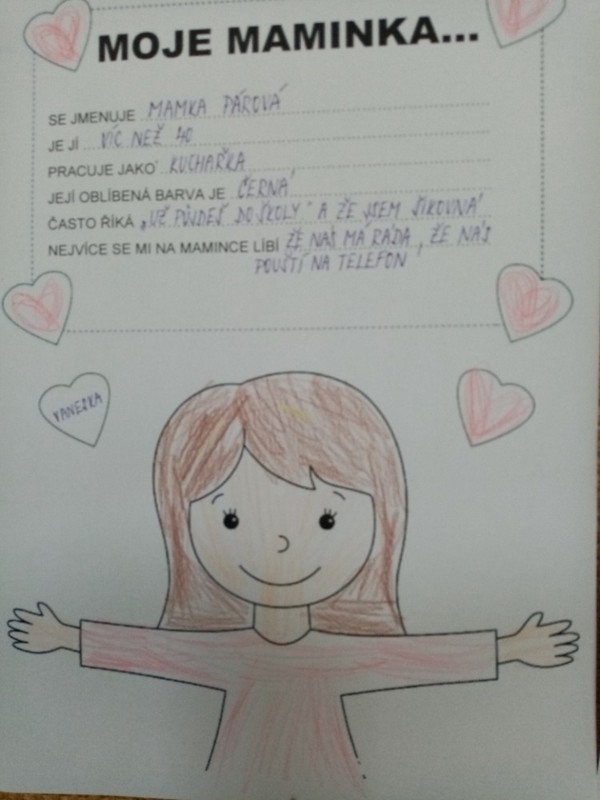 MOJE MAMINKA...
SE JMENUJE MAMKA PÁROVÁ
JE JÍ VÍC NEŽ 40
PRACUJE JAKO KUCHAŘKA
JEJÍ OBLÍBENÁ BARVA JE ČERNÁ
ČASTO ŘÍKÁ „UŽ PŮJDEŠ DO ŠKOLY" A ŽE JSEM ŠIKOVNÁ
NEJVÍCE SE MI NA MAMINCE LÍBÍ ŽE NÁS MÁ RÁDA, ŽE NÁS
POUŠTÍ NA TELEFON
VANESKA